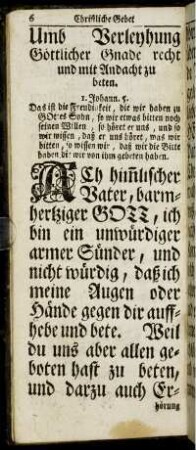 6 Christliche Gebet
Umb Verleyhung
Göttlicher Gnade recht
und mit Andacht zu
beten.
1. Johann. 5.
Das ist die Freudigkeit, die wir haben zu
GOttes Sohn, so wir etwas bitten noch
seinen Willen, so höret er uns, und so
wir wissen, daß er uns höret, was wir
bitten, so wissen wir, daß wir die Bitte
haben die wir von ihm gebeten haben.
ACh him̃lischer
Vater, barm-
hertziger GOTT, ich
bin ein unwürdiger
armer Sünder, und
nicht würdig, daß ich
meine Augen oder
Hände gegen dir auff-
hebe und bete. Weil
du uns aber allen ge-
boten hast zu beten,
und darzu auch Er-
hörung